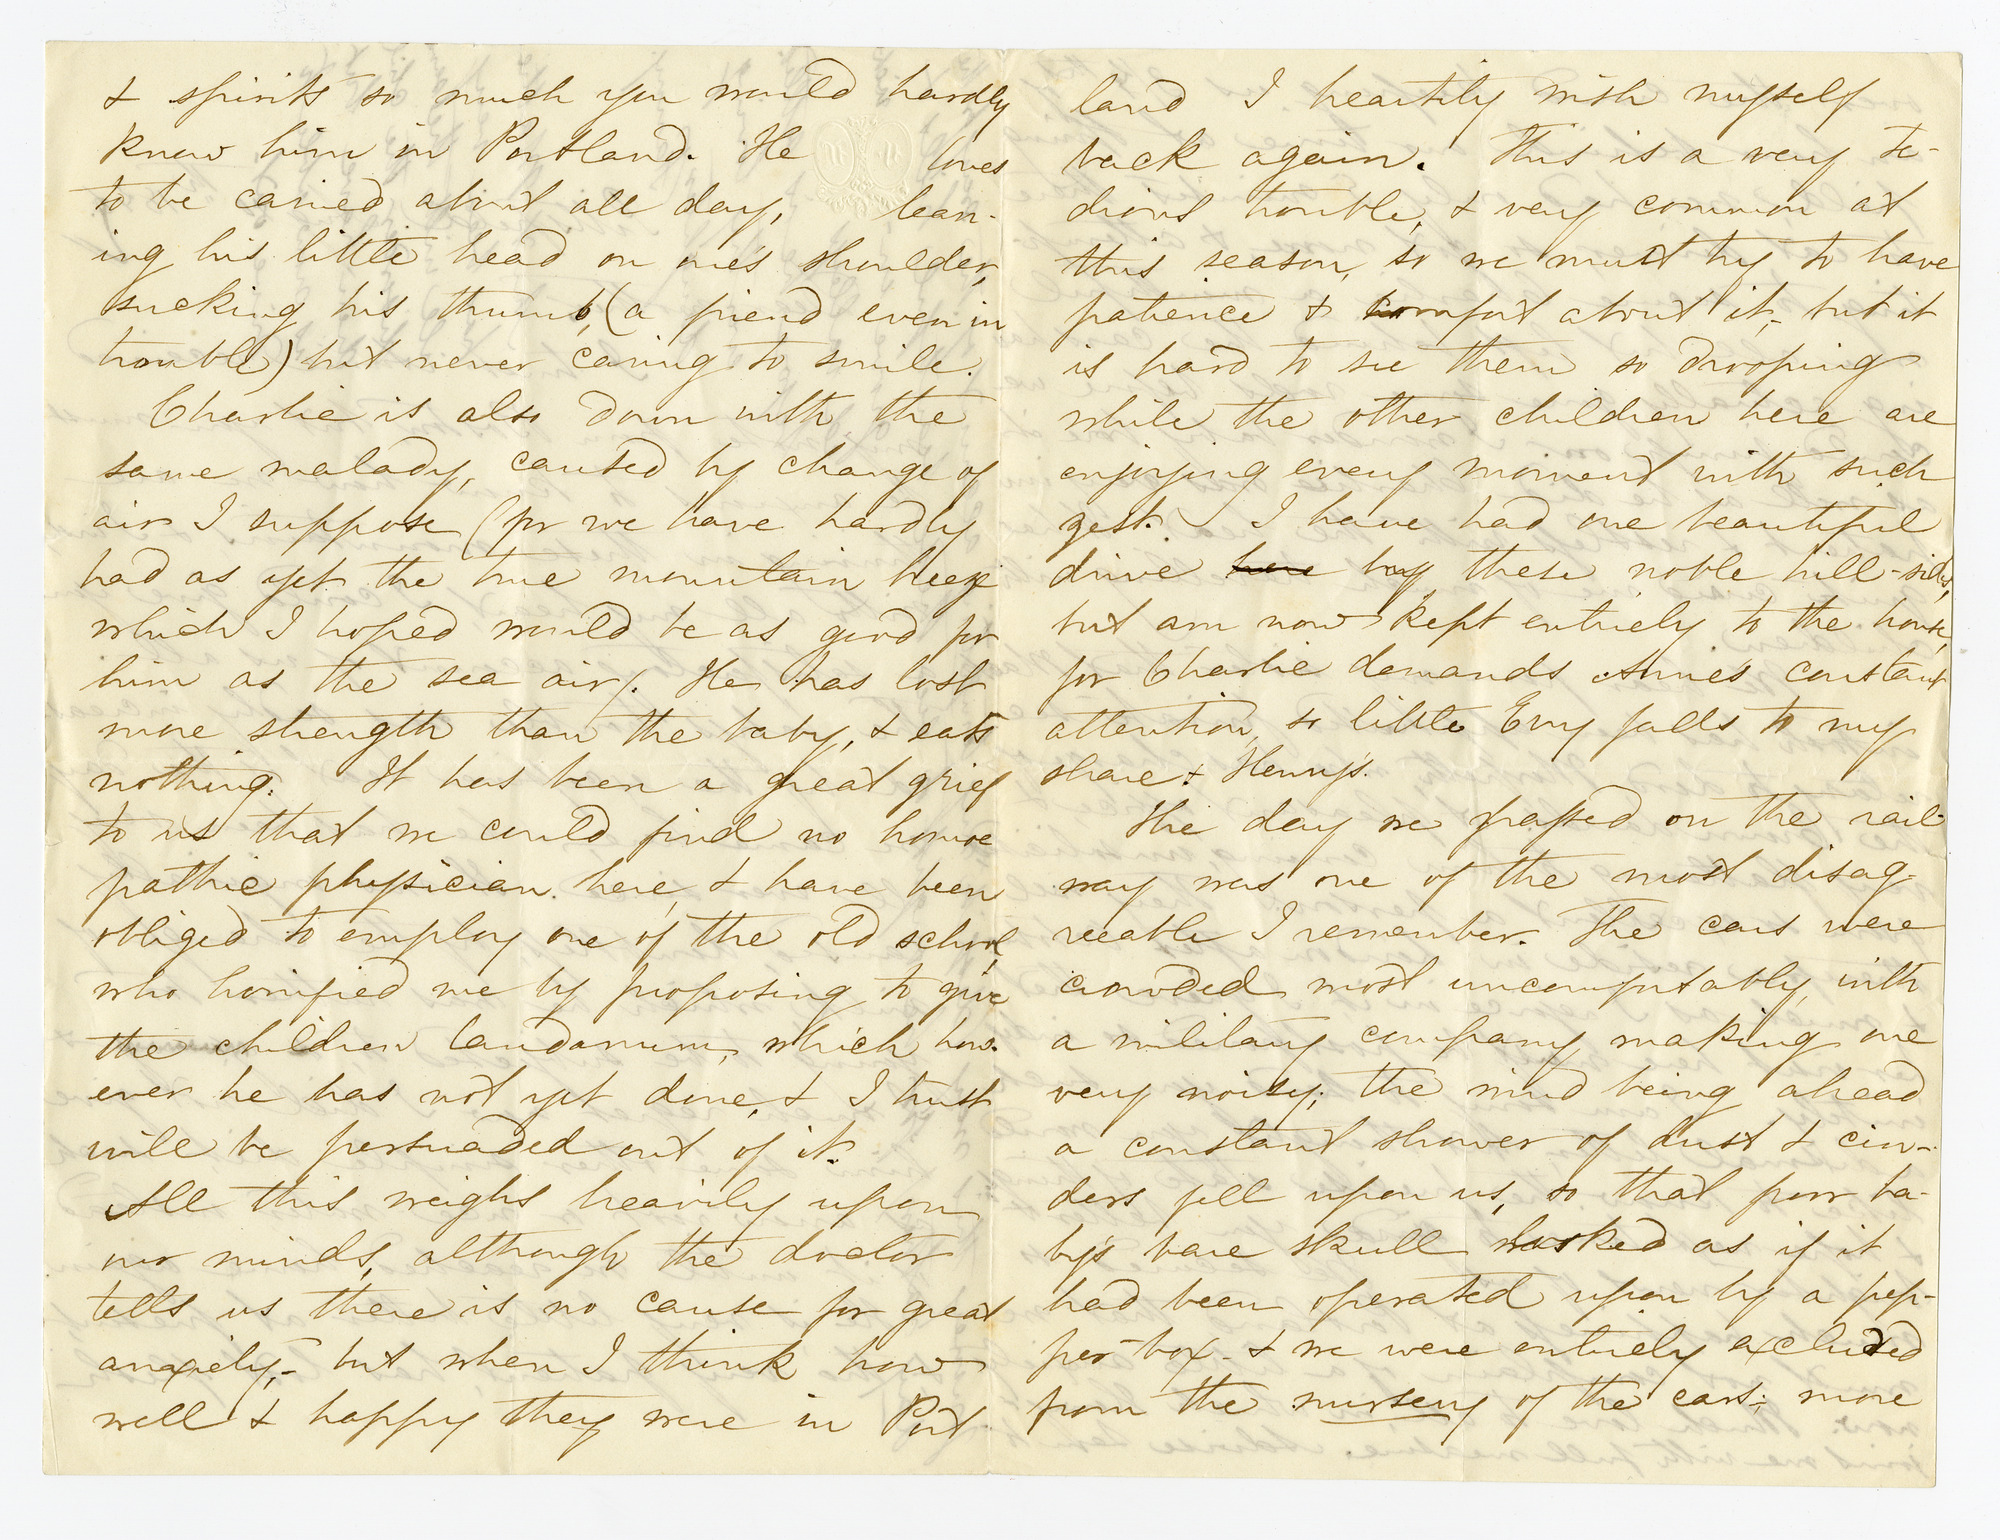 & spirits so much you would hardly
know him in Portland. He loves
to be carried about all day, lean-
ing his little head on one's shoulder,
sucking his thumb, (a friend even in
trouble) but never caring to smile.
Charlie is also down with the
same malady, caused by change of
air I suppose (for we have hardly
had as yet the true mountain breeze
which I hoped would be as good for
him as the sea air). He has lost
more strength than the baby, & eats
nothing. It has been a great grief
to us that we could find no homoe
pathic physician here, & have been
obliged to employ one of the old school,
who horrified me by proposing to give
the children laudanum, which how-
ever he has not yet done, & I trust
will be persuaded out of it.
All this weighs heavily upon
our minds, although the doctor
tells us there is no cause for great
anxiety,- but when I think how
well & happy they were in Port
land I heartily wish myself
back again. This is a very te-
dious trouble, & very common at
this season, so we must try to have
patience & comfort about it,- but it
is hard to see them so drooping
while the other children here are
enjoying every moment with such
zest. I have had one beautiful
drive here by these noble hill-sides,
but am now kept entirely to the house,
for Charlie demands Annie's constant
attention, so little Erny falls to my
share & Henry's.
The day we passed on the rail-
way was one of the most disag-
reeable I remember. The cars were
crowded most uncomfortably, with
a military company, making one
very noisy; the wind being ahead
a constant shower of dust & cin-
ders fell upon us, so that poor ba-
by's bare skull looked as if it
had been operated upon by a pep-
per-box- & we were entirely excluded
from the nursery of the cars; more